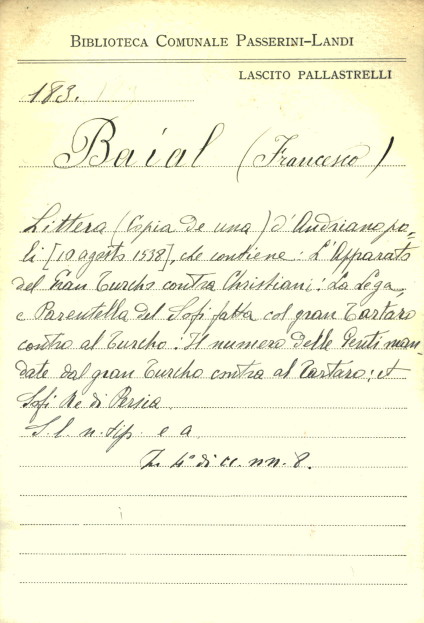 BIBLIOTECA COMUNALE PASSERINI-LANDI
LASCITO PALLASTRELLI
183.
Baial (Francesco)
Littera (Copia de una) d'Andrianopo-
li [10 agosto 1538], che contiene: L'Apparato
del Gran Turcho contra Christiani: La Lega
e Parentella del Sofi fatta col gran Tartaro
contro al Turcho: Il numero delle Genti man-
date dal gran Turcho contra al Tartaro: et
Sofi Re di Persia
S. l. n. tip. e a.
In 4° di cc. nn. 8.